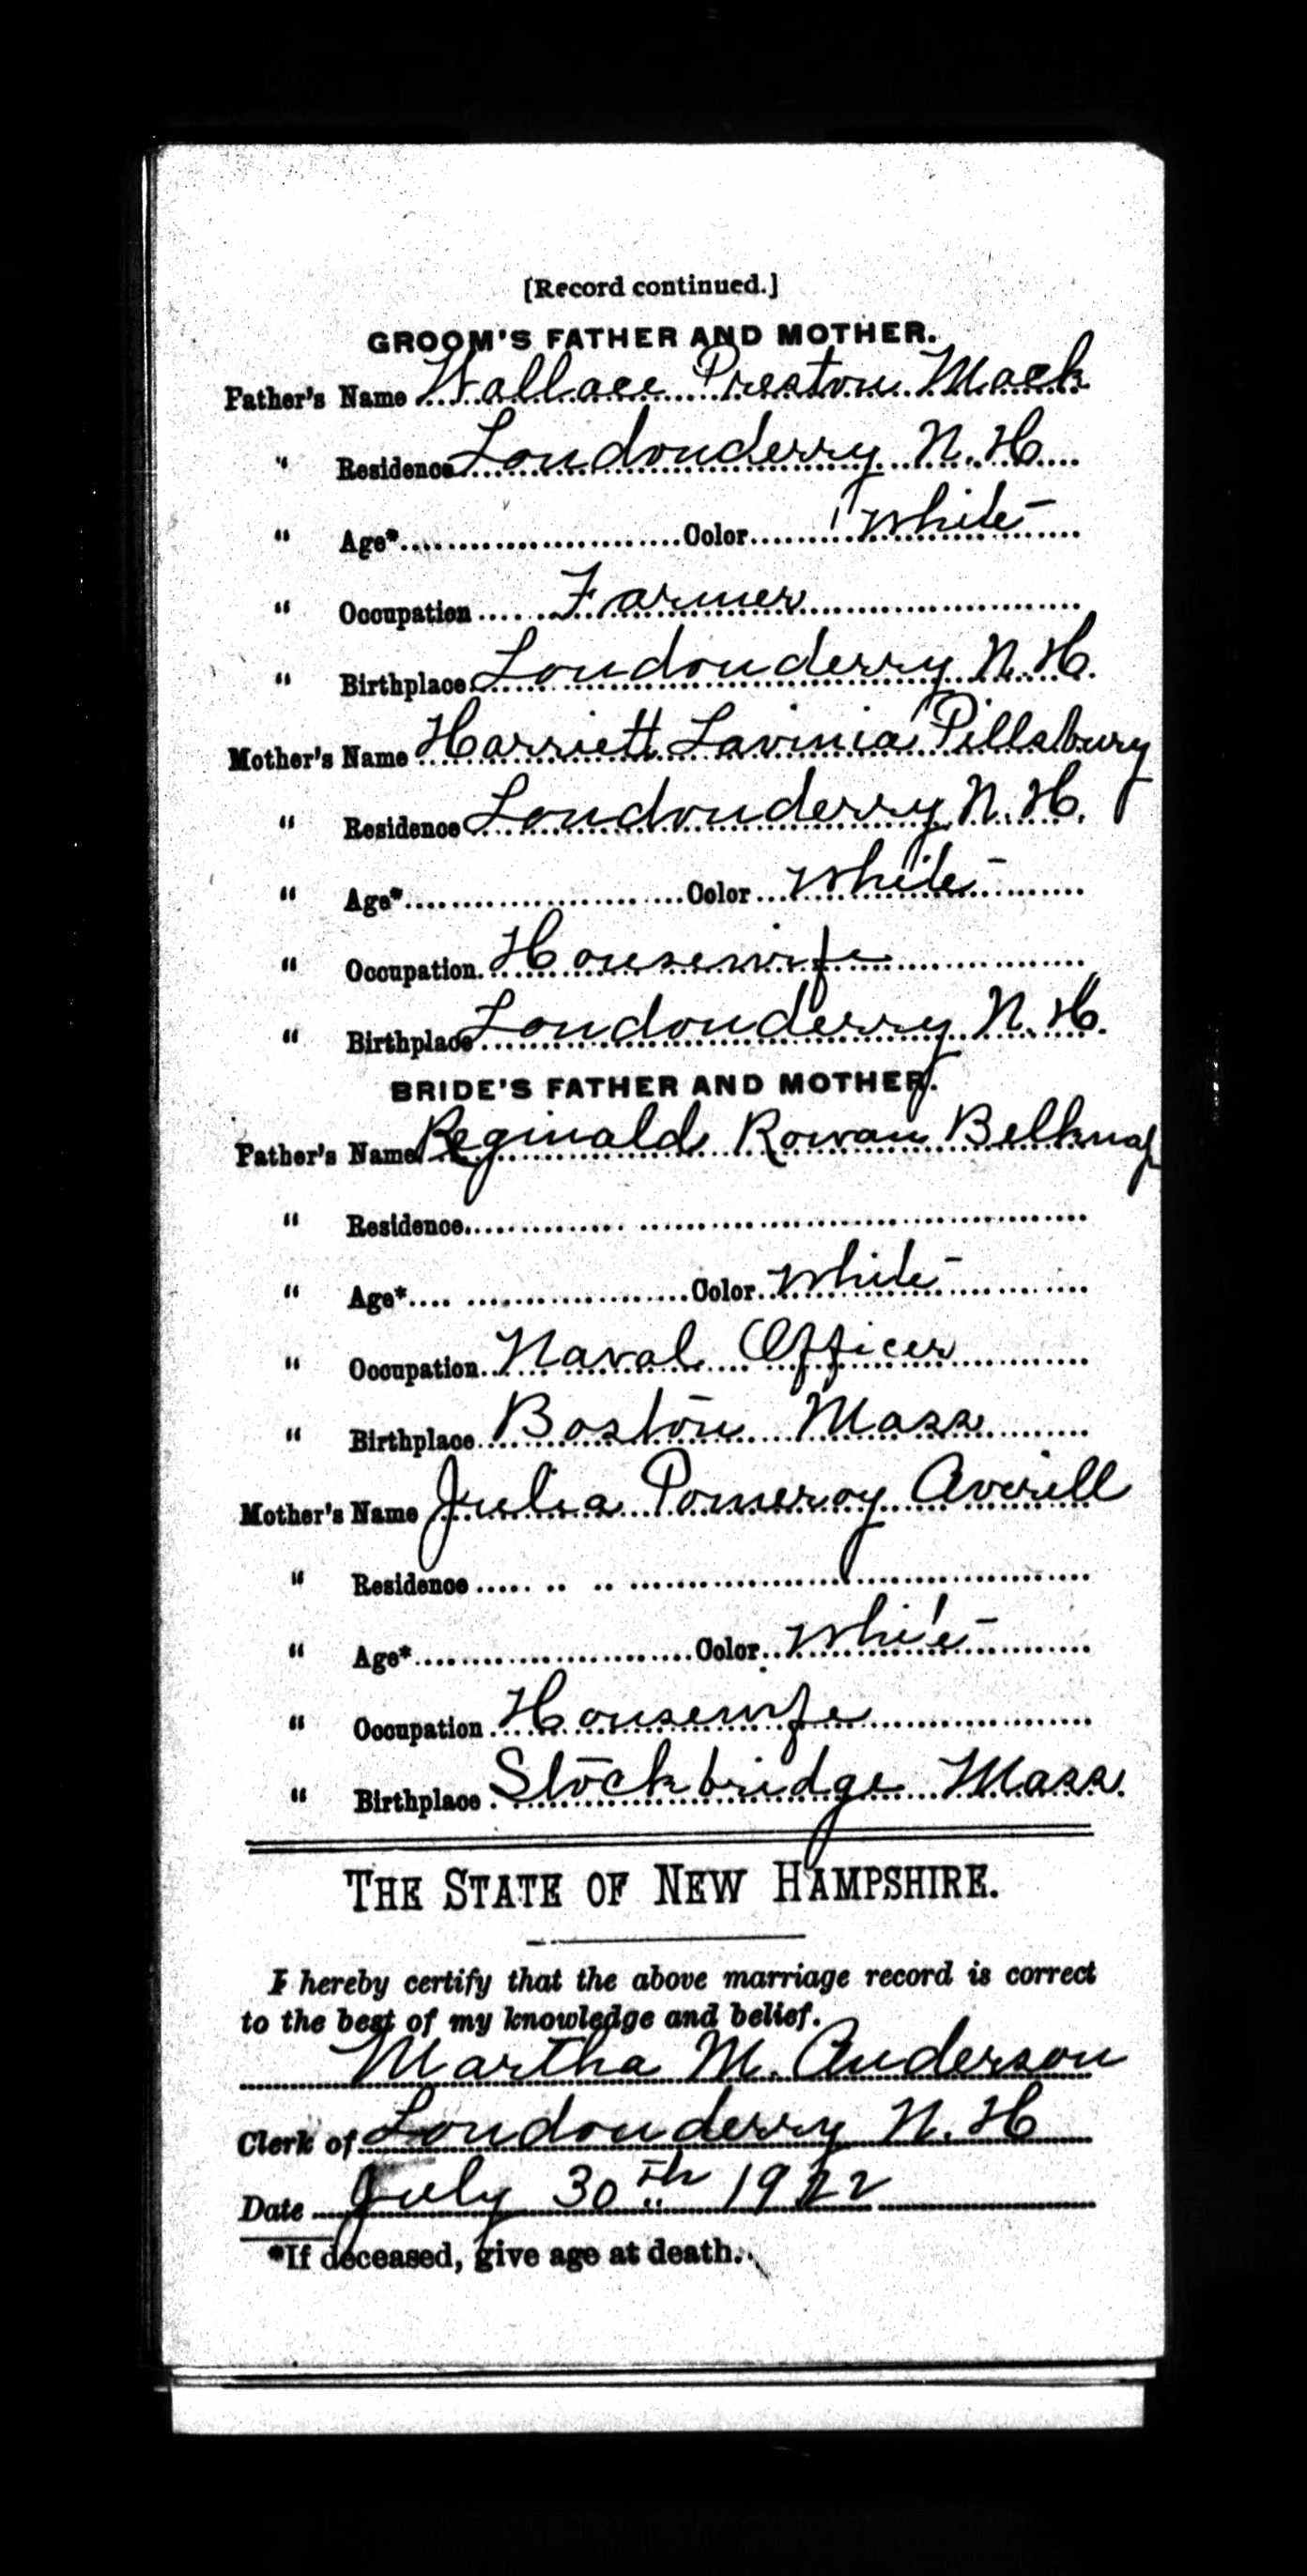 [Record continued.]
GROOM'S FATHER AND MOTHER.
Father's Name Wallace Preston Mack
" Residence Londonderry N. H.
" Age* Color White
" Occupation Farmer
" Birthplace Londonderry N. H.
Mother's Name Harriett Lavinia Pillsbury
" Residence Londonderry N. H.
" Age* Color White
" Occupation Housewife
" Birthplace Londonderry N. H.
BRIDE'S FATHER AND MOTHER.
Father's Name Reginald Rowan Belknap
" Residence
" Age* Color White
" Occupation Naval Officer
" Birthplace Boston Mass
Mother's Name Julia Pomeroy Averill
" Residence
" Age* Color White
" Occupation Housewife
" Birthplace Stockbridge Mass.
THE STATE OF NEW HAMPSHIRE.
I hereby certify that the above marriage record is correct
to the best of my knowledge and belief.
Martha M. Anderson
Clerk of Londonderry N. H
Date July 30th 1922
*If deceased, give age at death.